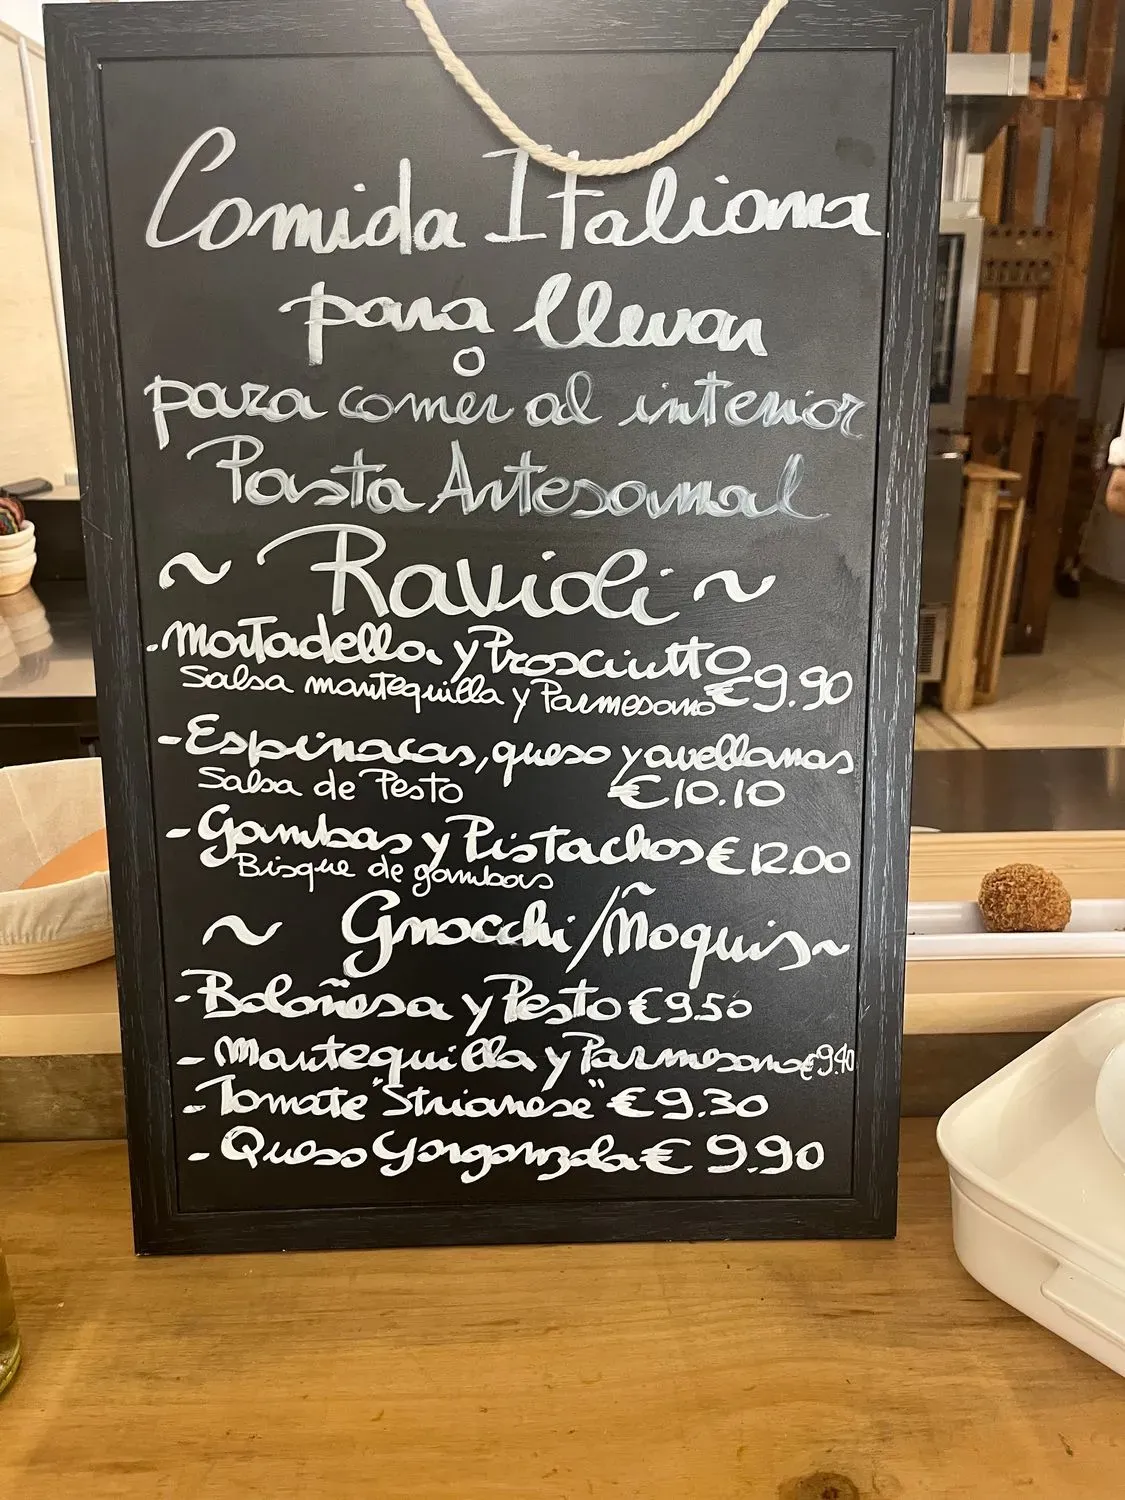 Comida Italiana
para llevar
o
para comer al interior
Pasta Artesanal
~ Ravioli ~
- Mortadella y Prosciutto
Salsa mantequilla y Parmesano €9.90
- Espinacas, queso y avellanas
Salsa de Pesto €10.10
- Gambas y Pistachos €12.00
Bisque de gambas
~ Gnocchi/Ñoquis ~
- Boloñesa y Pesto €9.50
- Mantequilla y Parmesano €9.40
- Tomate "Strianese" €9.30
- Queso Gorgonzola € 9.90